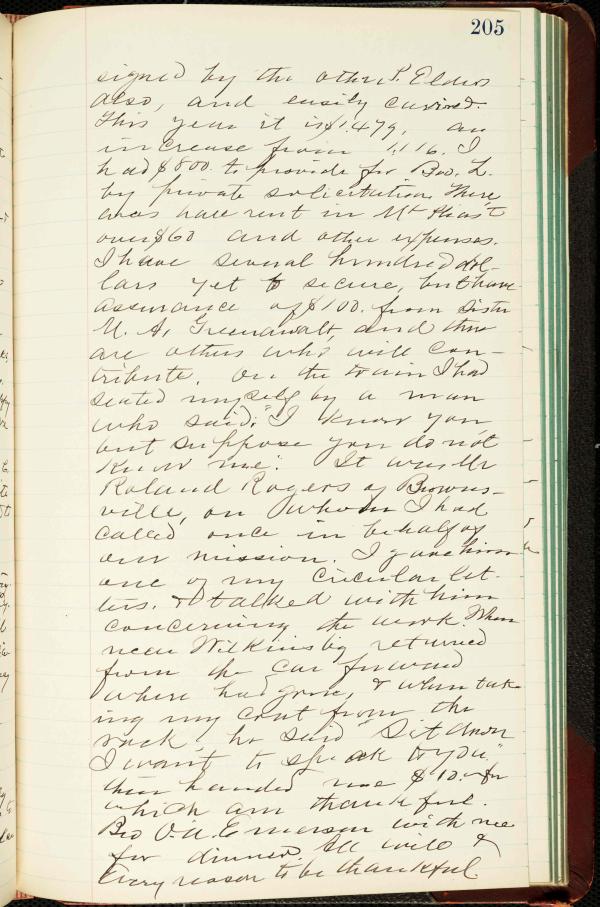 205
signed by the other P. Elders
also, and easily carried.
This year it is $1.479, an
increase from 1,116. I
had $800. to provide for Bro. L.
by private solicitation. There
was hall rent in Mt
over $60 and other expenses.
I have several hundred dol-
lars yet to secure, but have
assurance of $100. from Sister
M. A. Greenawalt, and there
are others who will con-
tribute. On the train I had
seated myself by a man
who said, "I know you,
but suppose you do not
know me". It was Mr
Roland Rogers of Browns-
ville, on whom I had
called once in behalf of
our mission. I gave him
one of my circular let-
ters. & talked with him
concerning the work. When
near Wilkinsbg returned
from the car forward
where had gone, & when tak-
ing my coat from the
rack, he said "Sit down
I want to speak to you."
then handed me $10. - for
which am thankful.
Bro O. A. Emerson with me
for dinner. All well &
Every reason to be thankful